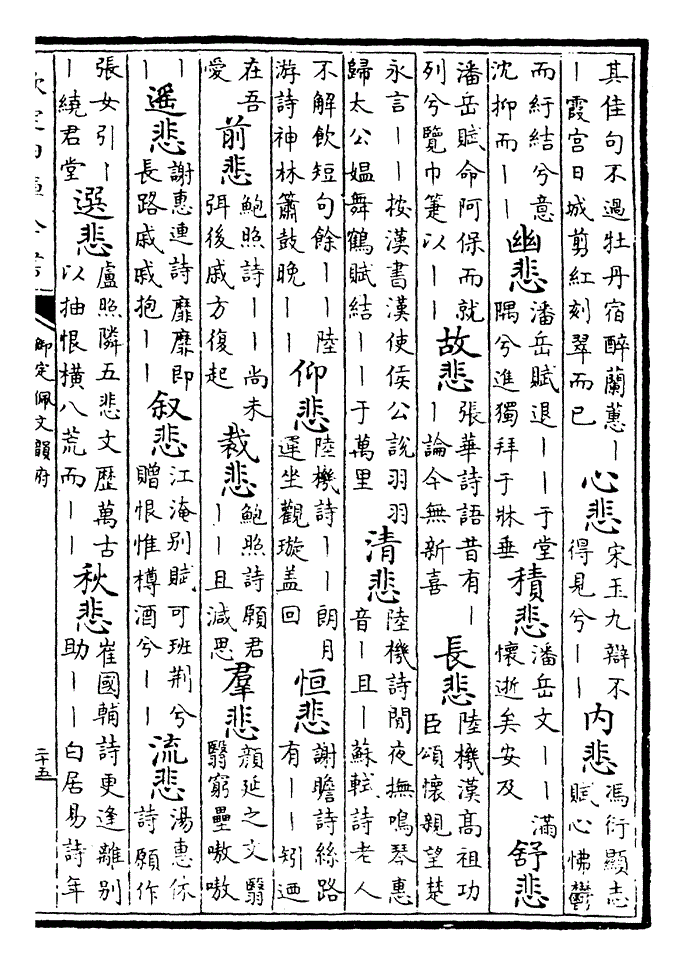 其佳句不過牡丹宿醉蘭蕙丨
丨霞宮日城剪紅刻翠而已
心悲
宋玉九辯不
得見兮丨丨
內悲
馮衍顯志
賦心怫鬱
而紆結兮意
沈抑而丨丨
幽悲
潘岳賦退丨丨于堂
隅兮進獨拜于牀垂
積悲
潘岳文丨丨滿
懷逝矣安及
舒悲
潘岳賦命阿保而就
列兮覽巾箑以丨丨
故悲
張華詩語昔有丨
丨論今無新喜
長悲
陸機漢高祖功
臣頌懷親望楚
永言丨丨按漢書漢使侯公說羽羽
歸太公媼舞鶴賦結丨丨于萬里
清悲
陸機詩閒夜撫鳴琴惠
音丨且丨蘇軾詩老人
不解飲短句餘丨丨陸
游詩神林簫鼓晚丨丨
仰悲
陸機詩丨丨朗月
遲坐觀璇盖回
恒悲
謝瞻詩絲路
有丨丨矧迺
在吾
愛
前悲
鮑照詩丨丨尚未
弭後戚方復起
裁悲
鮑照詩願君
丨丨且減思
羣悲
顔延之文翳
翳窮壘嗷嗷
丨
丨
遥悲
謝惠連詩靡靡即
長路戚戚抱丨丨
叙悲
江淹别賦可班荆兮
贈恨惟樽酒兮丨丨
流悲
湯惠休
詩願作
張女引丨
丨繞君堂
選悲
盧照隣五悲文歷萬古
以抽恨横八荒而丨丨
秋悲
崔國輔詩更逢離别
助丨丨白居易詩年
欽定四庫全書
御定佩文韻府
二十五